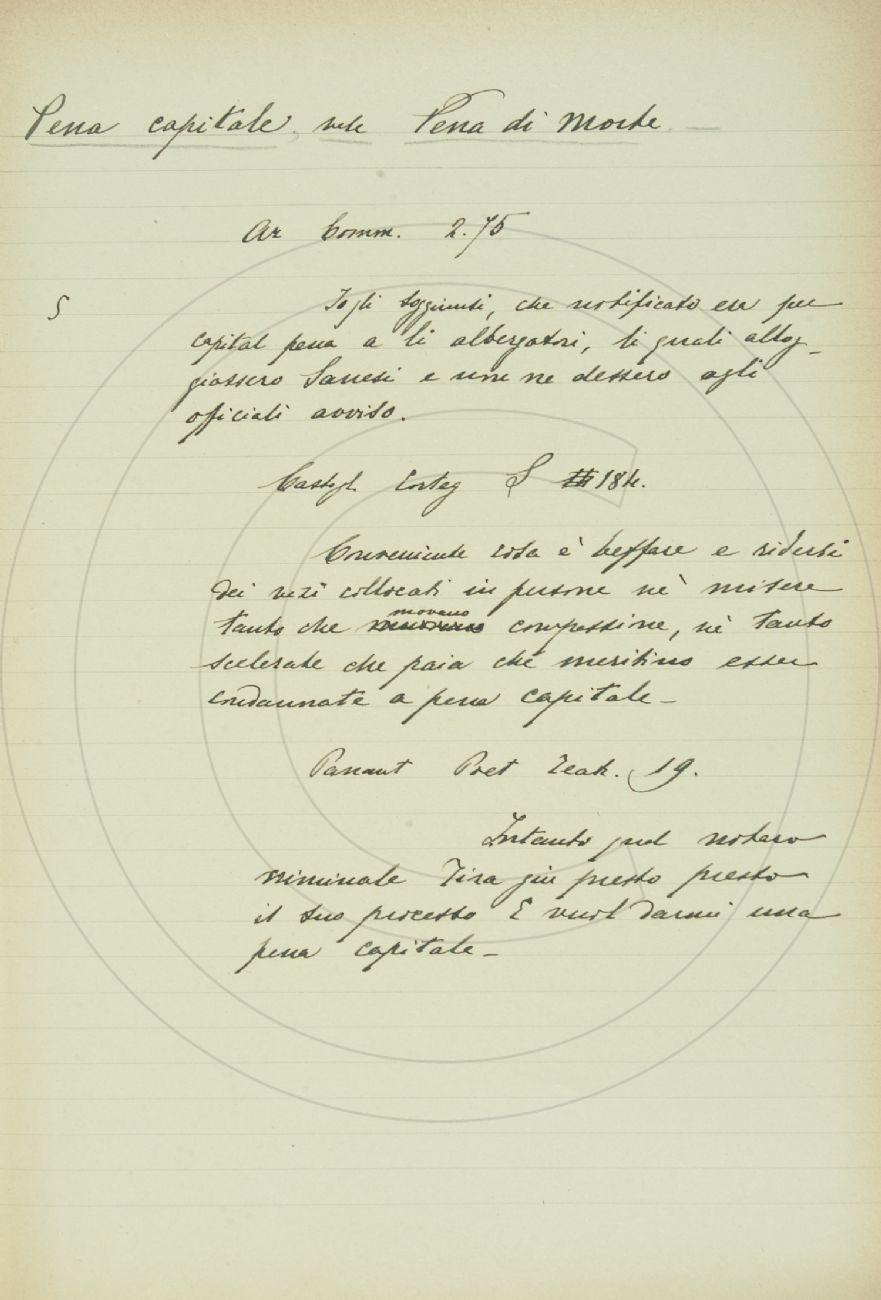 Pena capitale, vedi Pena di Morte
Ar Comm. 2.75
S Io gli soggiunsi, che notificato era per
capital pena a li albergatori, li quali allog_
giassero Sanesi e non ne dessero agli
oficiali avviso.
Castigl Corteg 184.
Conveniente cosa è beffare e ridersi
dei vizi collocati in persone nè misere
tanto che movano compassione, nè tanto
scelerate che paia che meritino esser
condannate a pena capitale_
Panant Poet Teat. 19.
Intanto quel notaro
criminale Tira giù presto presto
il suo processo E vuol darmi una
pena capitale_